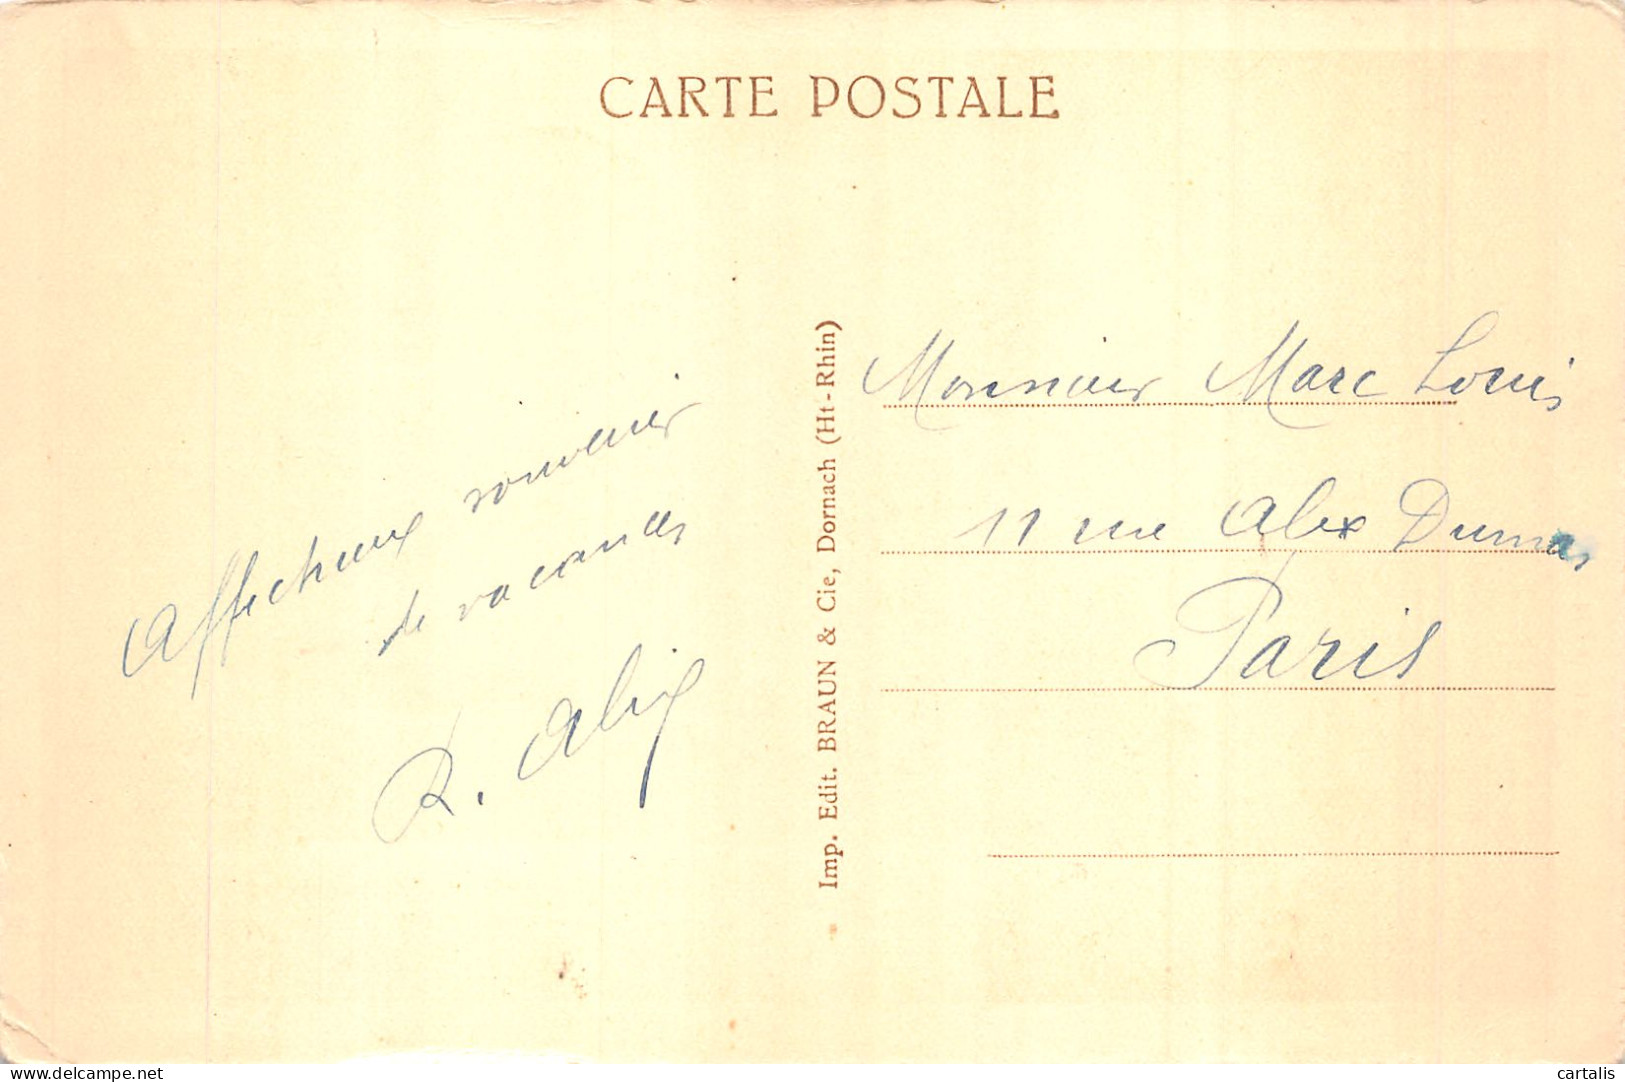 CARTE POSTALE
Affectueux souvenir
de vacances
R. Alix
Imp. Edit. BRAUN & Cie, Dornach (Ht-Rhin)
Monsieur Marc Louis
11 rue Alex Dumas
Paris
www.delcampe.net
cartalis